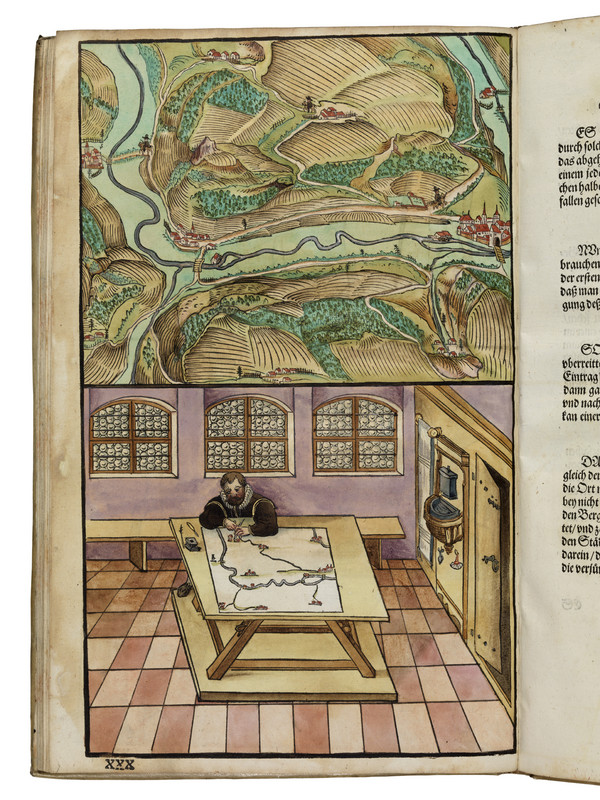 ES
durch solch
das abgeh
einem jede
chen halbe
fallen gese
NVn
brauchen
der ersten
daß man
gung deß
SO
vberreitte
Eintrag
dann ga
vnd nach
kan einer
DA
gleich der
die Ort n
bey nicht
den Berg
tet/vnd z
den Stä
darein/d
die verjün
XXX